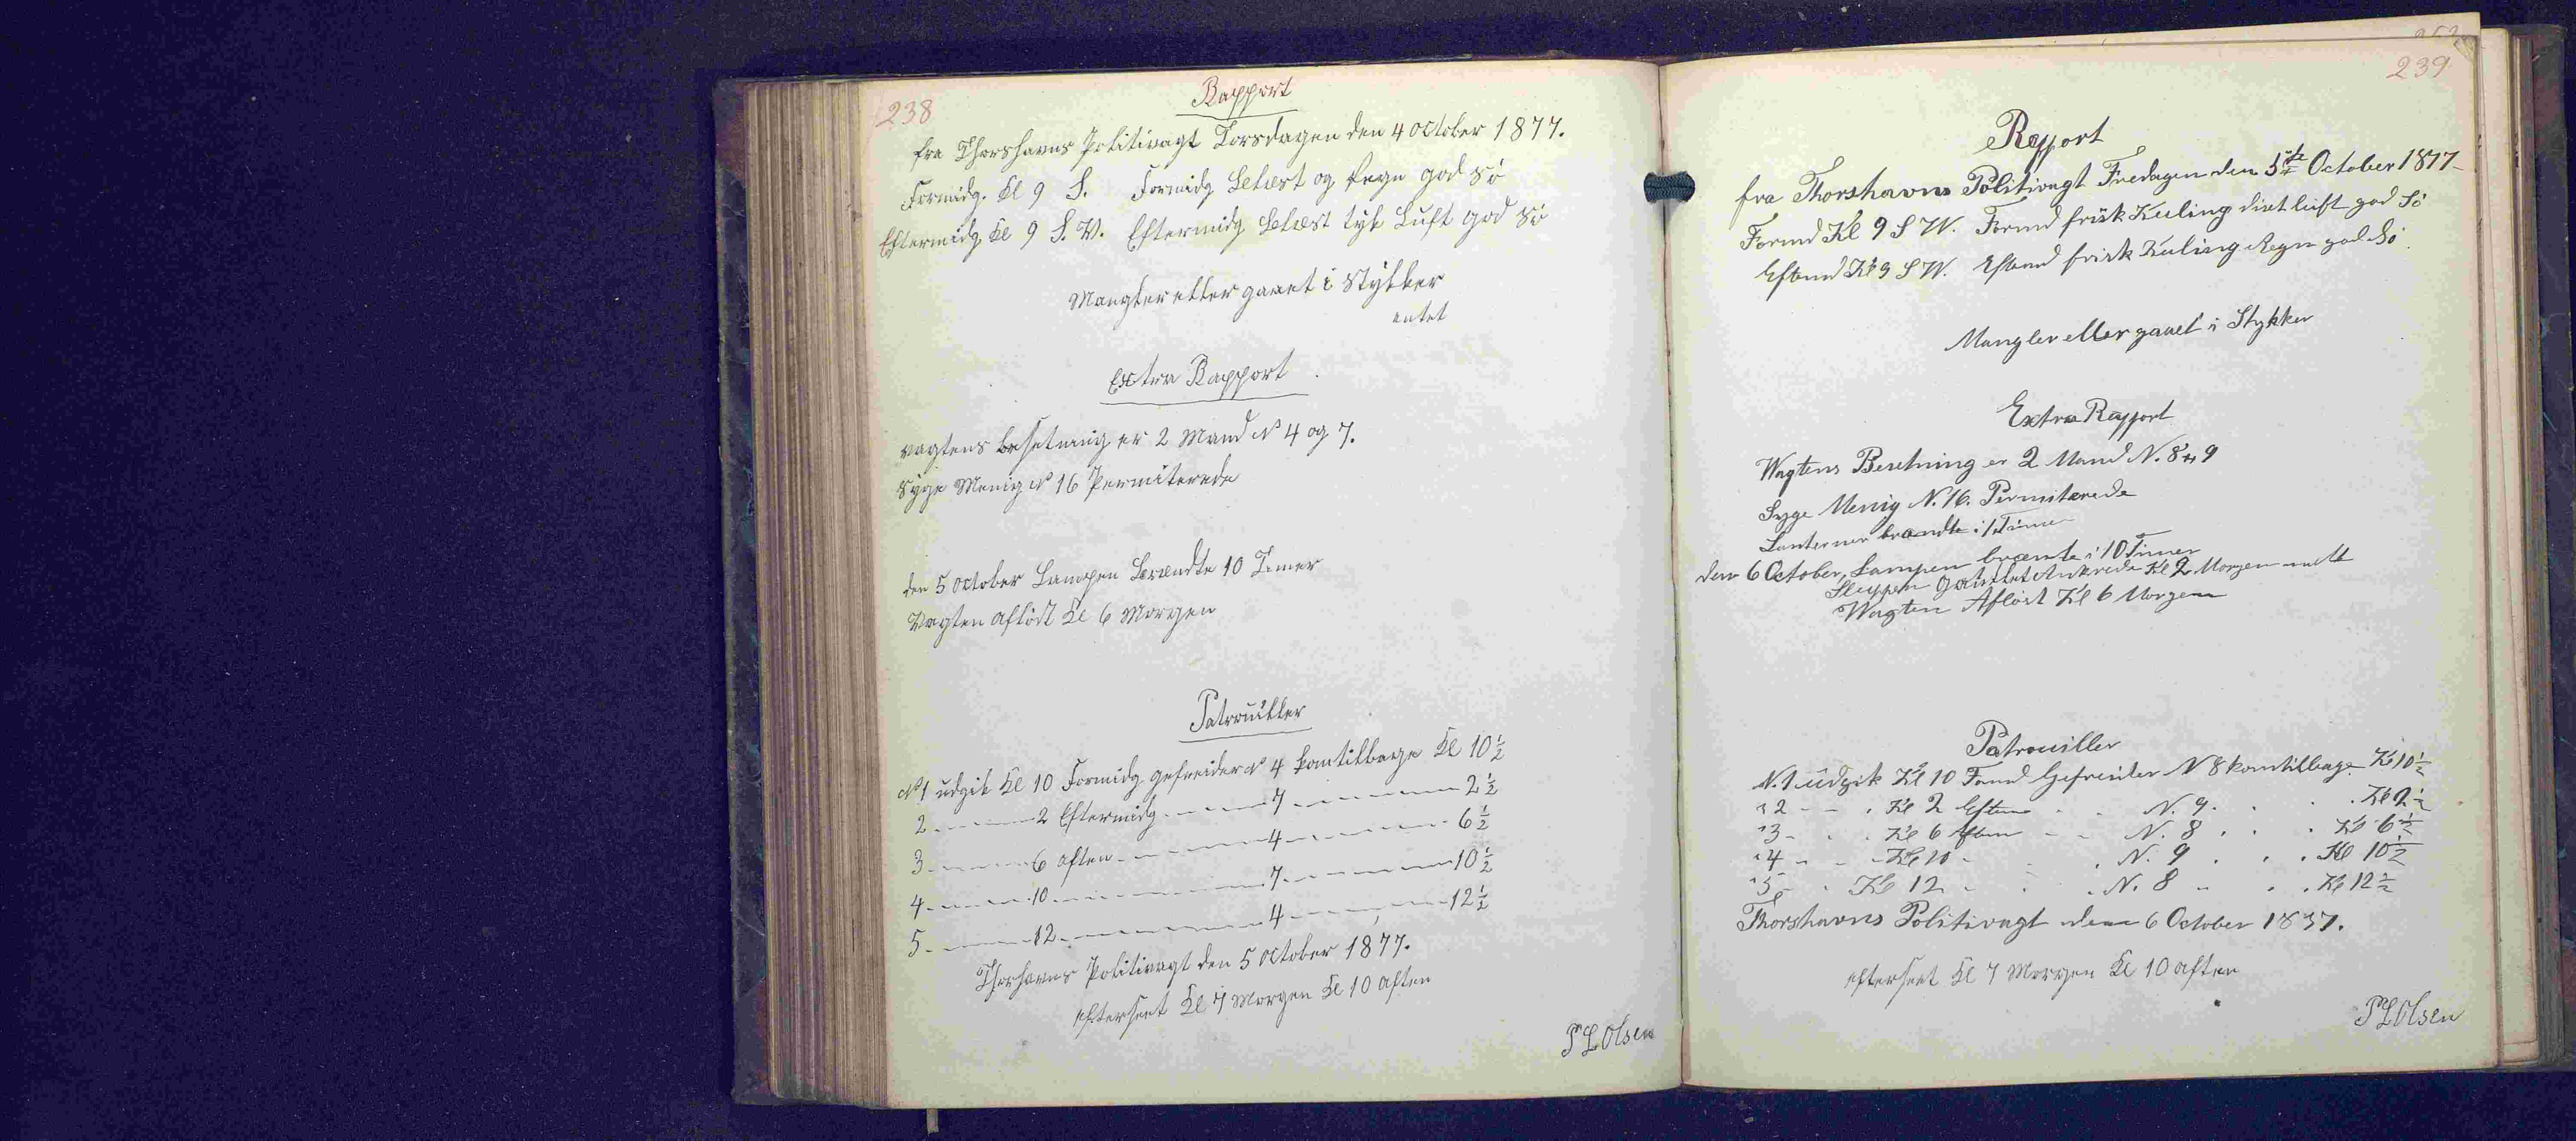 238
Rapport
fra Thorshavns Politivagt Torsdagen den 4 October 1877.
Formidg. Kl 9 S. Formidg Blæst og Regn god Sö
Eftermidg Kl 9 S.V. Eftermidg Blæst tyk Luft god Sö
Mangler eller gaaet i Stykker
entet
Extra Rapport
vagtens Besetning er 2 Mand No 4 og 7.
Syge Menig No 16 Permiterede
den 5 October Lampen Brændte 10 Timer
Vagten aflöst Kl 6 Morgen
Patrouiller
No 1 udgik Kl 10 Formidg gefreider No 4 kom tilbage Kl 10 1/2
2 - - - 2 Eftermidg - - - 7 - - - 2 1/2
3 - - - 6 aften - - - 4 - - - 6 1/2
4 - - - 10 - - - 7 - - - 10 1/2
5 - - - 12 - - - 4 - - - 12 1/2
Thorhavns Politivagt den 5 October 1877.
efterseet Kl 7 Morgen Kl 10 aften
P L Olsen
239
Rapport
fra Thorshavns Politivagt Fredagen den 5te October 1877
Formd Kl 9 S W. Formd frisk Kuling diset luft god Sö
Eftmd Kl 9 S W. Eftmd frisk Kuling Regn god Sö.
Mangler eller gaaet i Stykker
Extra Rapport
Wagtens Besetning er 2 Mand N. 8 og 9
Syge Menig N. 16. Permiterede
Lanterner brændte i 1 Timer
den 6 October, Lampen brænte i 10 Timer
Sluppen Ankrede Kl 2 Morgen
Wagten Aflöst Kl 6 Morgen
Patrouiller
N. 1 udgik Kl 10 Formd Gefreider N 8 kom tilbage Kl 10 1/2
" 2 - - Kl 2 Eftmd - - N. 9 . . Kl 2 1/2
" 3 - - Kl 6 Aften - - N. 8 . . Kl 6 1/2
" 4 - - Kl 10 - - N. 9 . . Kl 10 1/2
" 5 - Kl 12 - - N. 8 . . Kl 12 1/2
Thorshavns Politivagt den 6 October 1877.
efterseet Kl 7 Morgen Kl 10 aften
P L Olsen